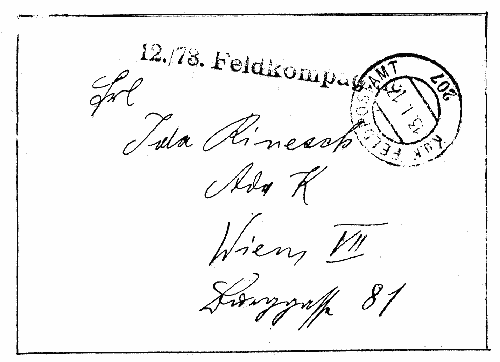 12./78. Feldkompa
K.u.K. FELDPOSTAMT 207
13.I.1
Frl
Ida Rinesch
Adr K
Wien VII
Burggasse 81